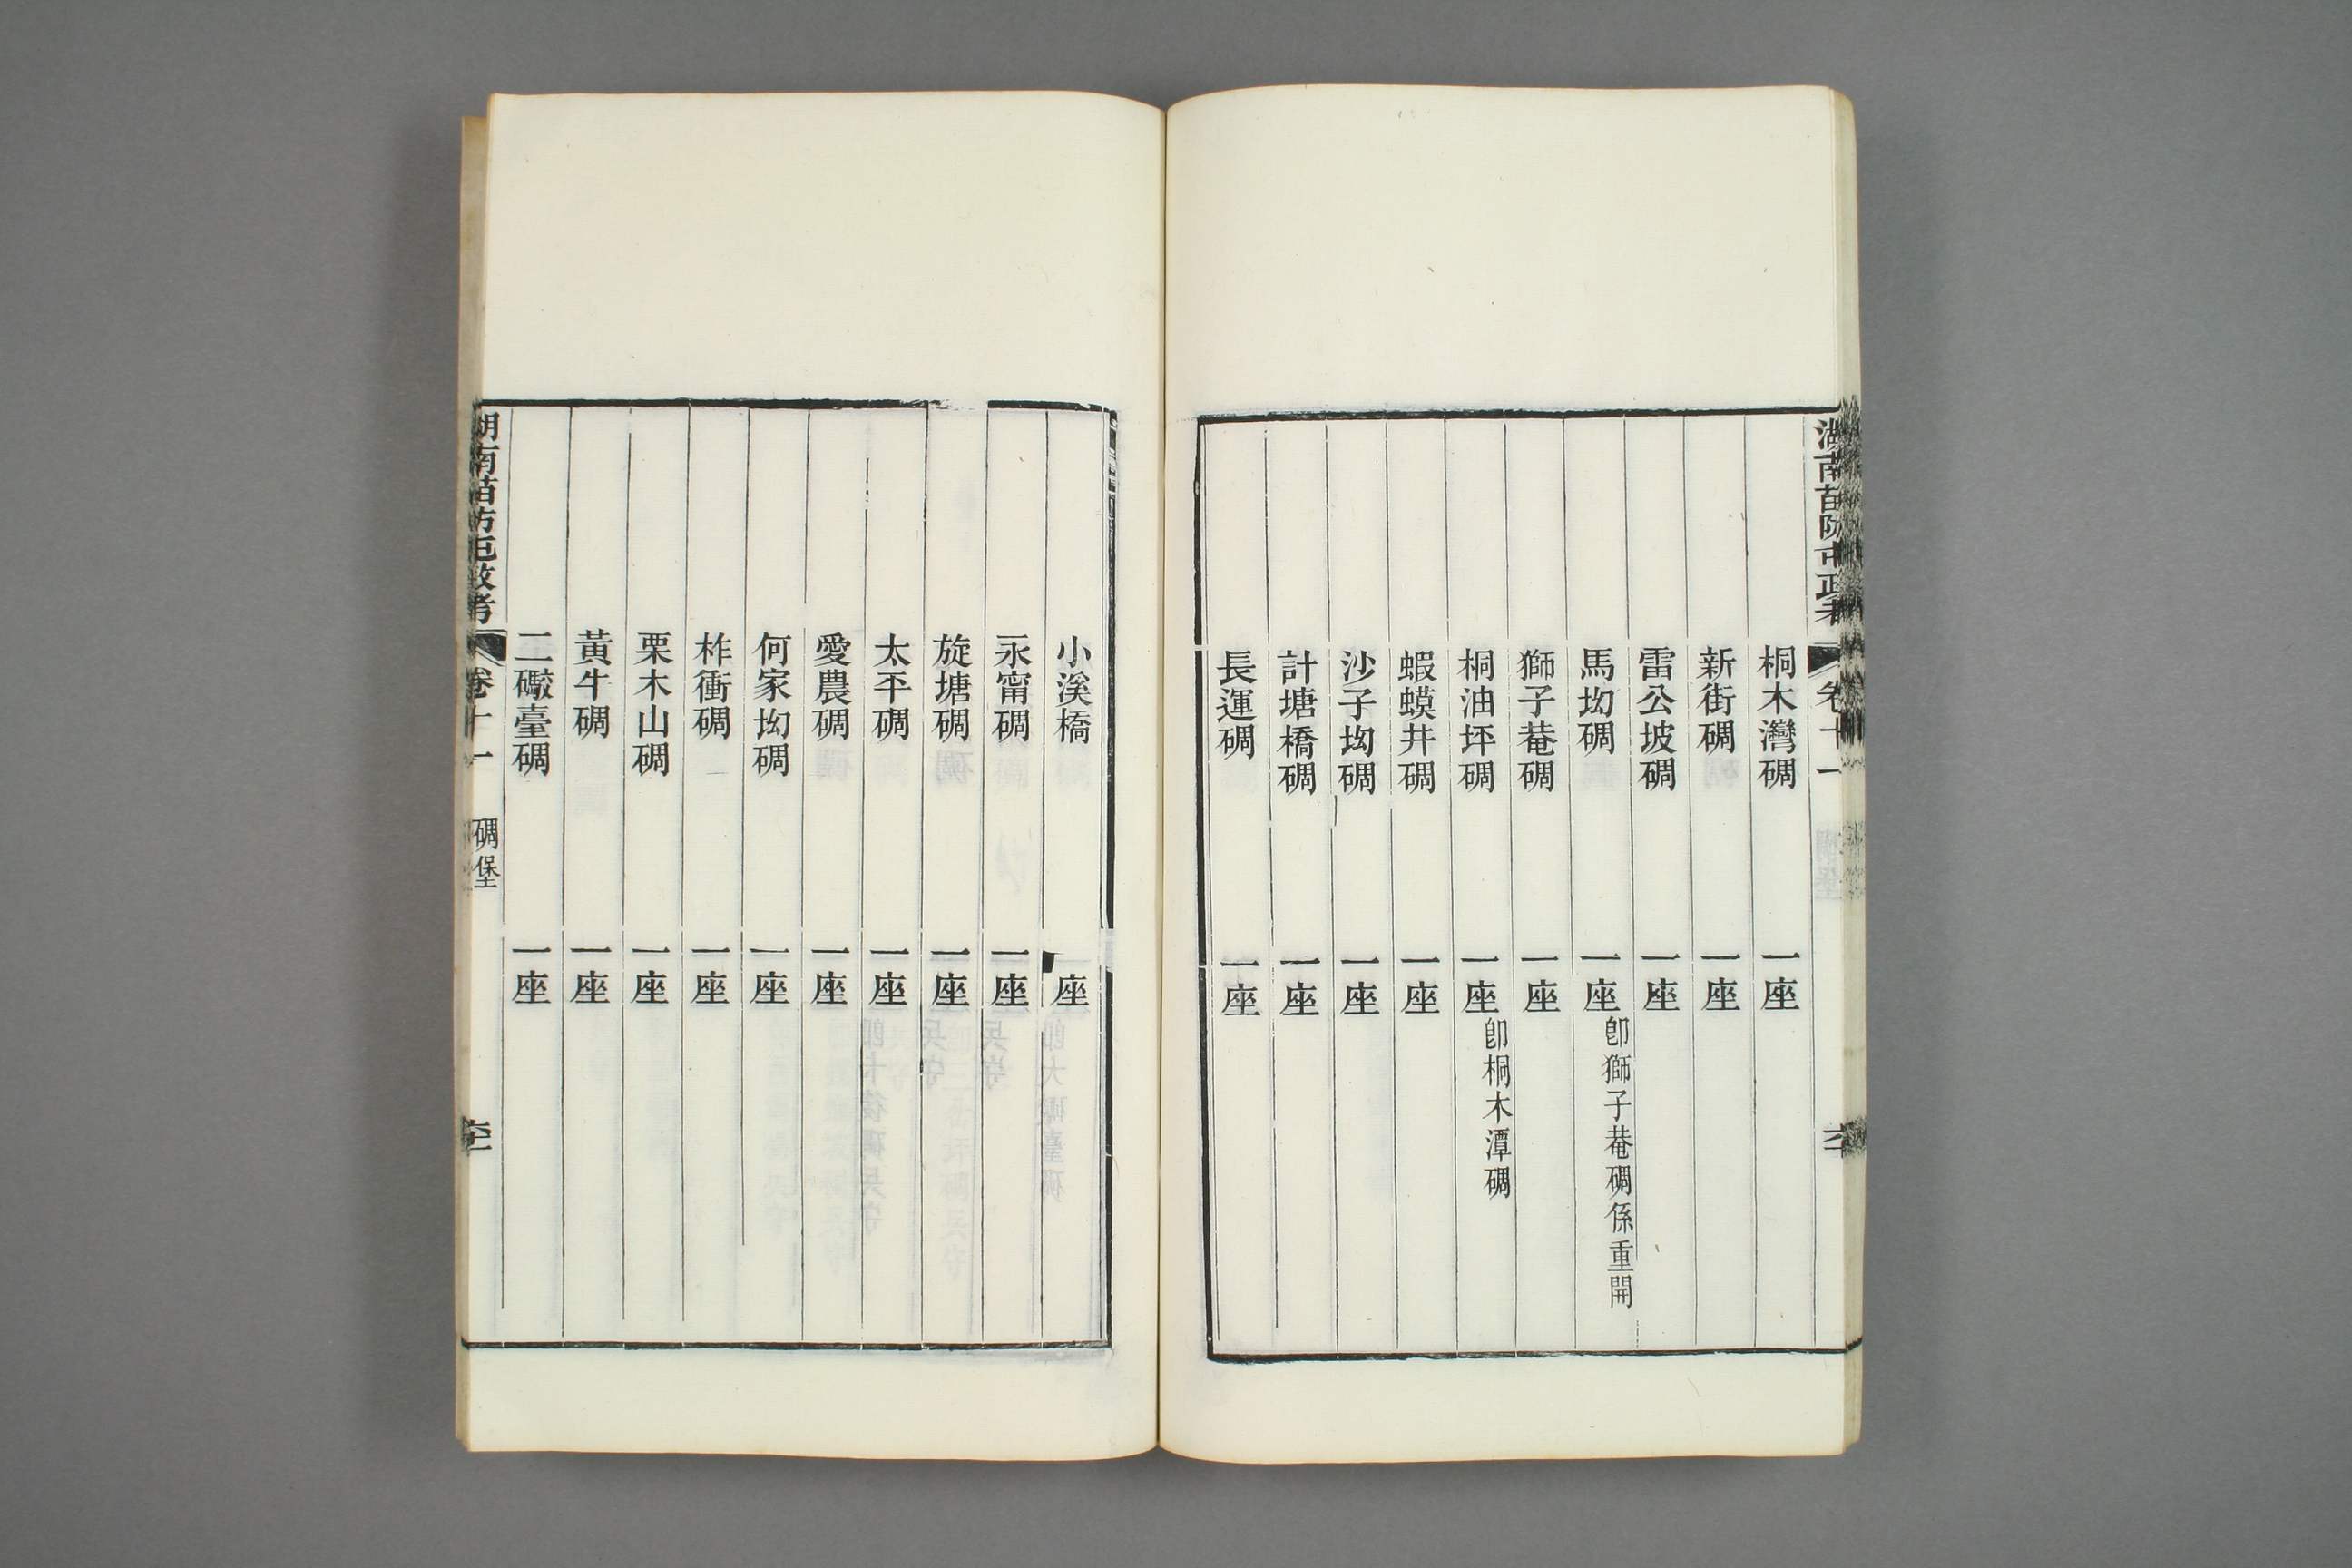 湖南苗防屯政考 卷十一
桐木灣碉 一座
新街碉 一座
雷公坡碉 一座
馬坳碉 一座 即獅子菴碉係重開
獅子菴碉 一座
桐油坪碉 一座 即桐木潭碉
蝦蟆井碉 一座
沙子坳碉 一座
計塘橋碉 一座
長運碉 一座
小溪橋 一座
永甯碉 一座
旋塘碉 一座
太平碉 一座
愛農碉 一座
何家坳碉 一座
柞衝碉 一座
栗木山碉 一座
黃牛碉 一座
二礮臺碉 一座
湖南苗防屯政考 卷十一 碉堡